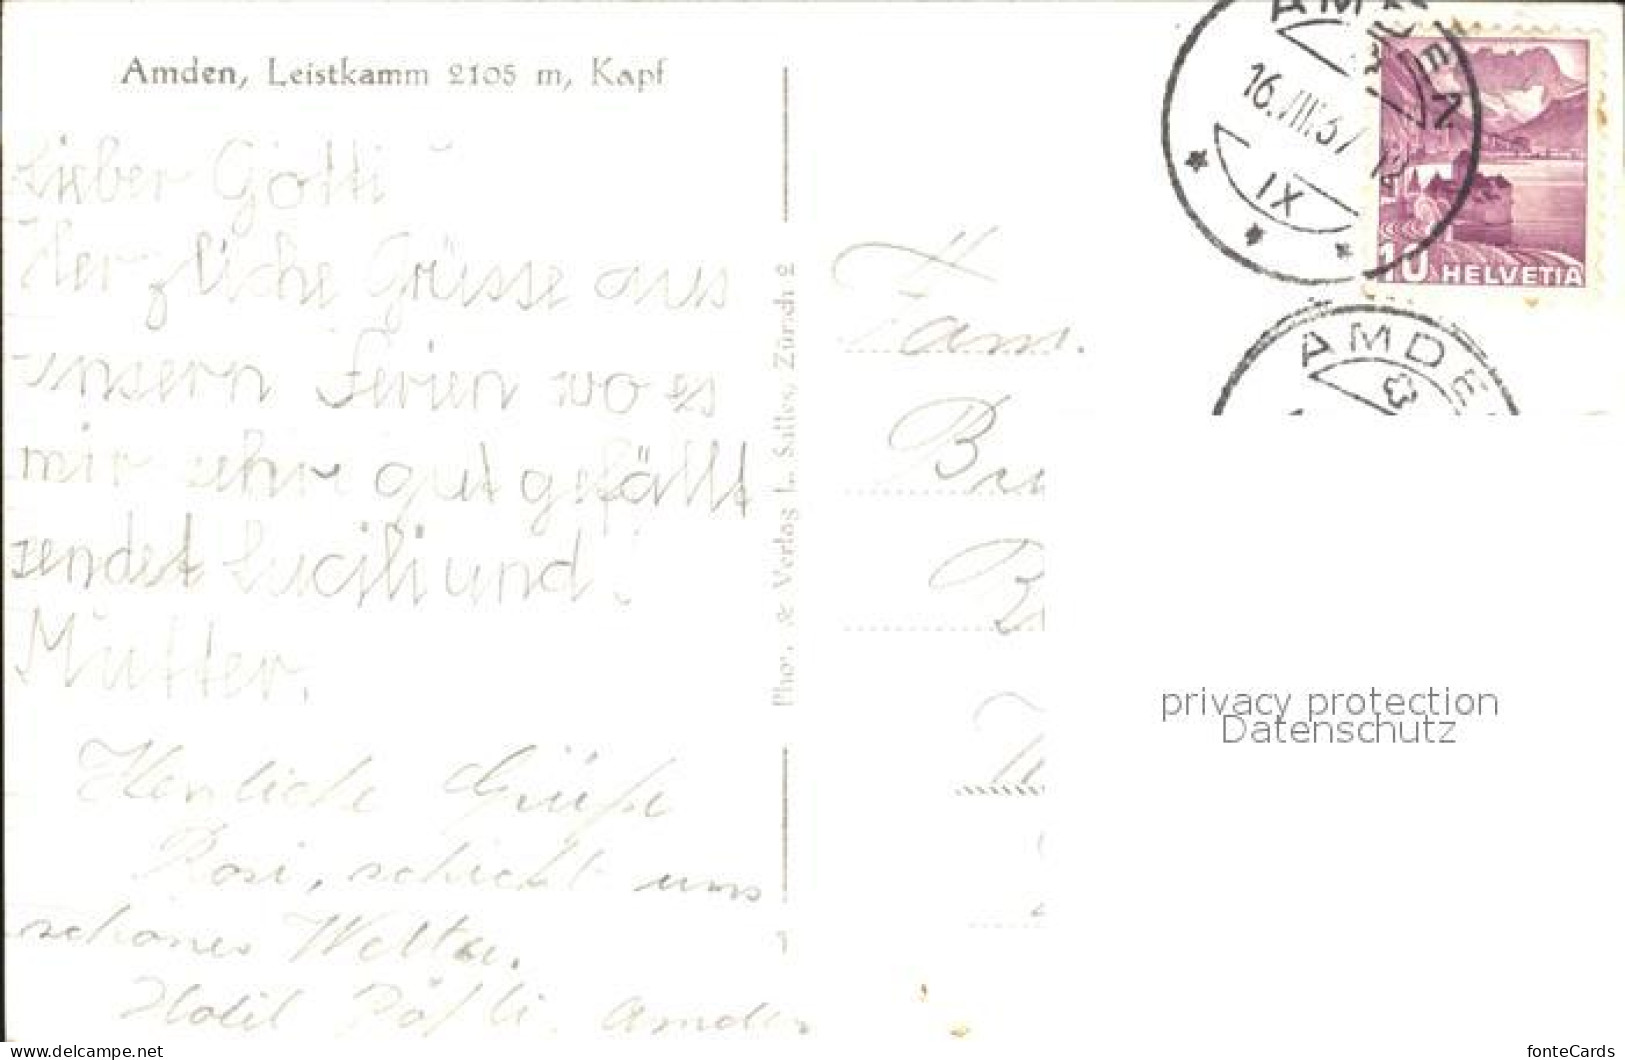 Amden, Leistkamm 2105 m, Kapf
Lieber Götti
Herzliche Grüsse aus
unsern Ferien wo es
mir sehr gut gefällt
sendet Luciliund
Mutter.
Herzliche Grüße
Rosi, schickt uns
schönes Wetter.
Hotel Rössli Amden
Phot. & Verlag L. Sattes, Zürich 2
AMDEN
16.VIII.37
IX
10 HELVETIA
Fam.
AMDE
privacy protection
Datenschutz
www.delcampe.net
fonteCards